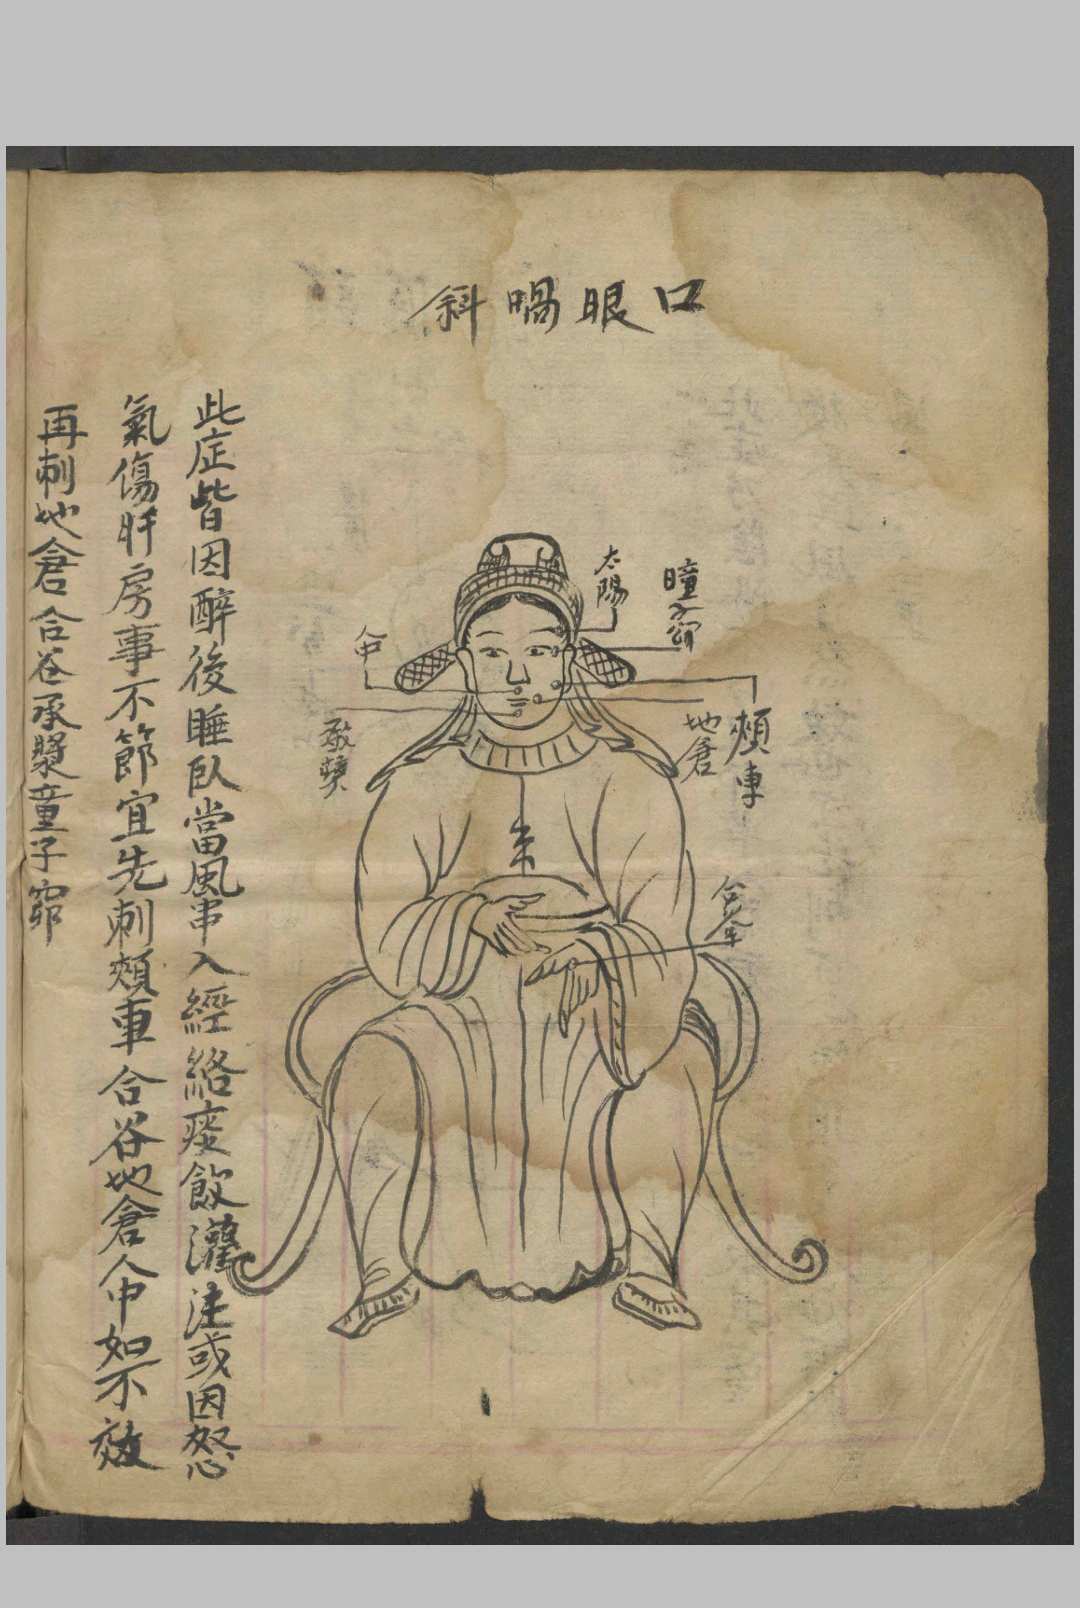 口眼喎斜
瞳子窌
太陽
頰車
地倉
人中
承漿
合谷
此症皆因醉後睡臥當風串入經絡痰飲灌注或因怒
氣傷肝房事不節宜先刺頰車合谷地倉人中如不效
再刺地倉合谷承漿童子窌